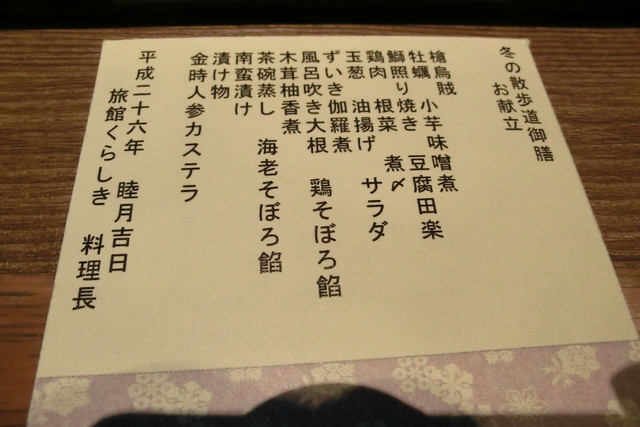 冬の散歩道御膳
お献立
槍烏賊 小芋味噌煮
牡蠣 豆腐田楽
鰤照り焼き 煮〆
鶏肉 根菜 サラダ
玉葱 油揚げ
ずいき伽羅煮
風呂吹き大根 鶏そぼろ餡
木茸柚香煮
茶碗蒸し 海老そぼろ餡
南蛮漬け
漬け物
金時人参カステラ
平成二十六年 睦月吉日
旅館くらしき 料理長